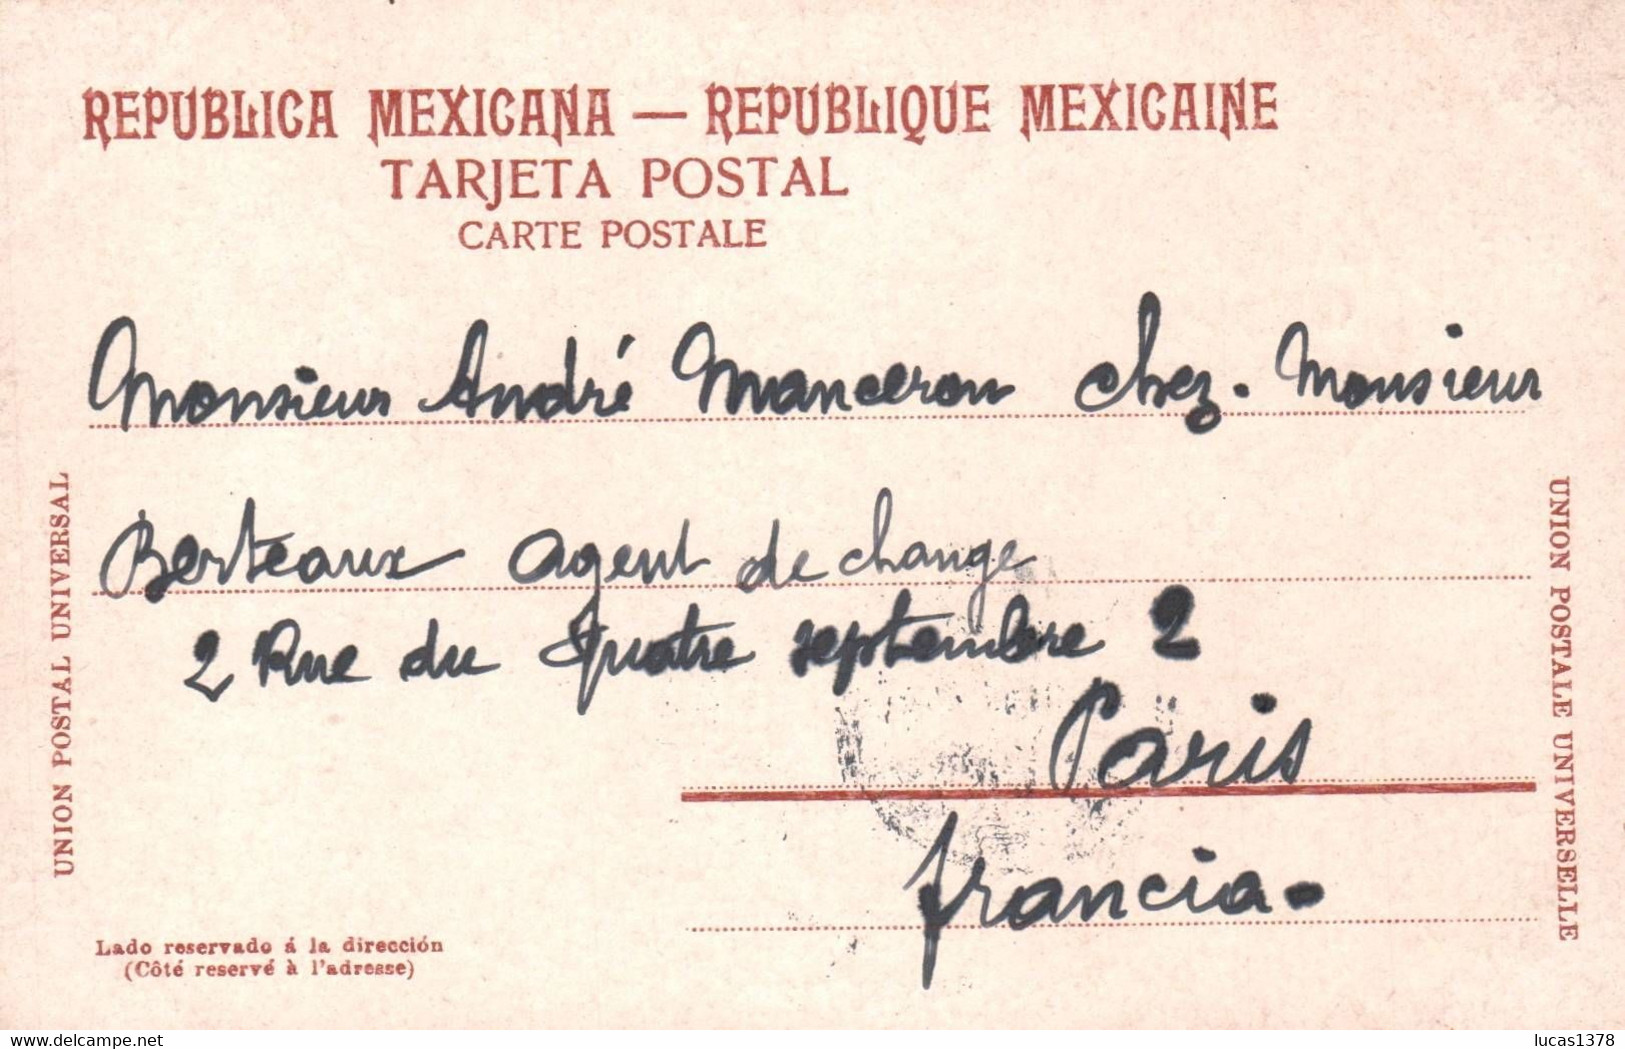 REPUBLICA MEXICANA — REPUBLIQUE MEXICAINE
TARJETA POSTAL
CARTE POSTALE
Monsieur André Manceron chez. Monsieur
Berteaux agent de change
2 Rue du Quatre septembre 2
Paris
francia.
UNION POSTAL UNIVERSAL
UNION POSTALE UNIVERSELLE
Lado reservado á la dirección
(Côté reservé à l'adresse)
delcampe.net
lucas1378